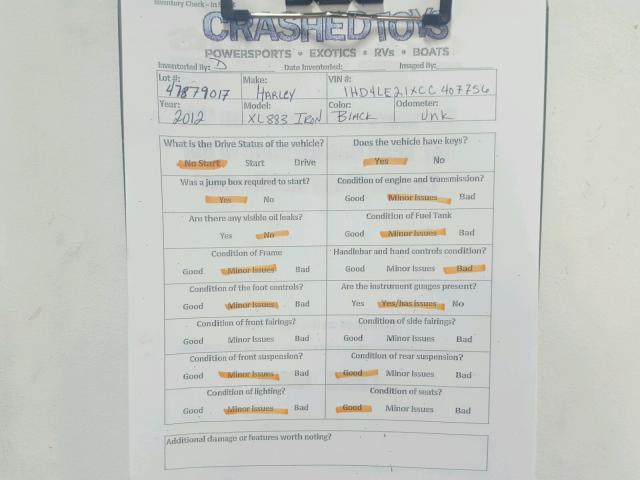 Inventory Check - In
CRASHEDTOYS
POWERSPORTS • EXOTICS • RVs • BOATS
Inventoried By: D Date Inventoried: Imaged By:
Lot #: 47879017 Make: HARLEY VIN #: 1HD4LE21XCC407756
Year: 2012 Model: XL883 IRON Color: BLACK Odometer: UNK
What is the Drive Status of the vehicle? Does the vehicle have keys?
No Start Start Drive Yes No
Was a jump box required to start? Condition of engine and transmission?
Yes No Good Minor Issues Bad
Are there any visible oil leaks? Condition of Fuel Tank
Yes No Good Minor Issues Bad
Condition of Frame Handlebar and hand controls condition?
Good Minor Issues Bad Good Minor Issues Bad
Condition of the foot controls? Are the instrument guages present?
Good Minor Issues Bad Yes Yes/has issues No
Condition of front fairings? Condition of side fairings?
Good Minor Issues Bad Good Minor Issues Bad
Condition of front suspension? Condition of rear suspension?
Good Minor Issues Bad Good Minor Issues Bad
Condition of lighting? Condition of seats?
Good Minor Issues Bad Good Minor Issues Bad
Additional damage or features worth noting?